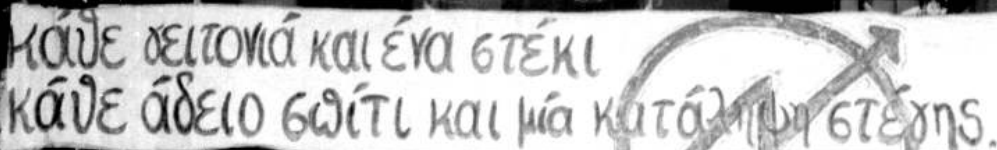 κάθε γειτονιά και ένα στέκι
κάθε άδειο σπίτι και μία κατάληψη στέγης.